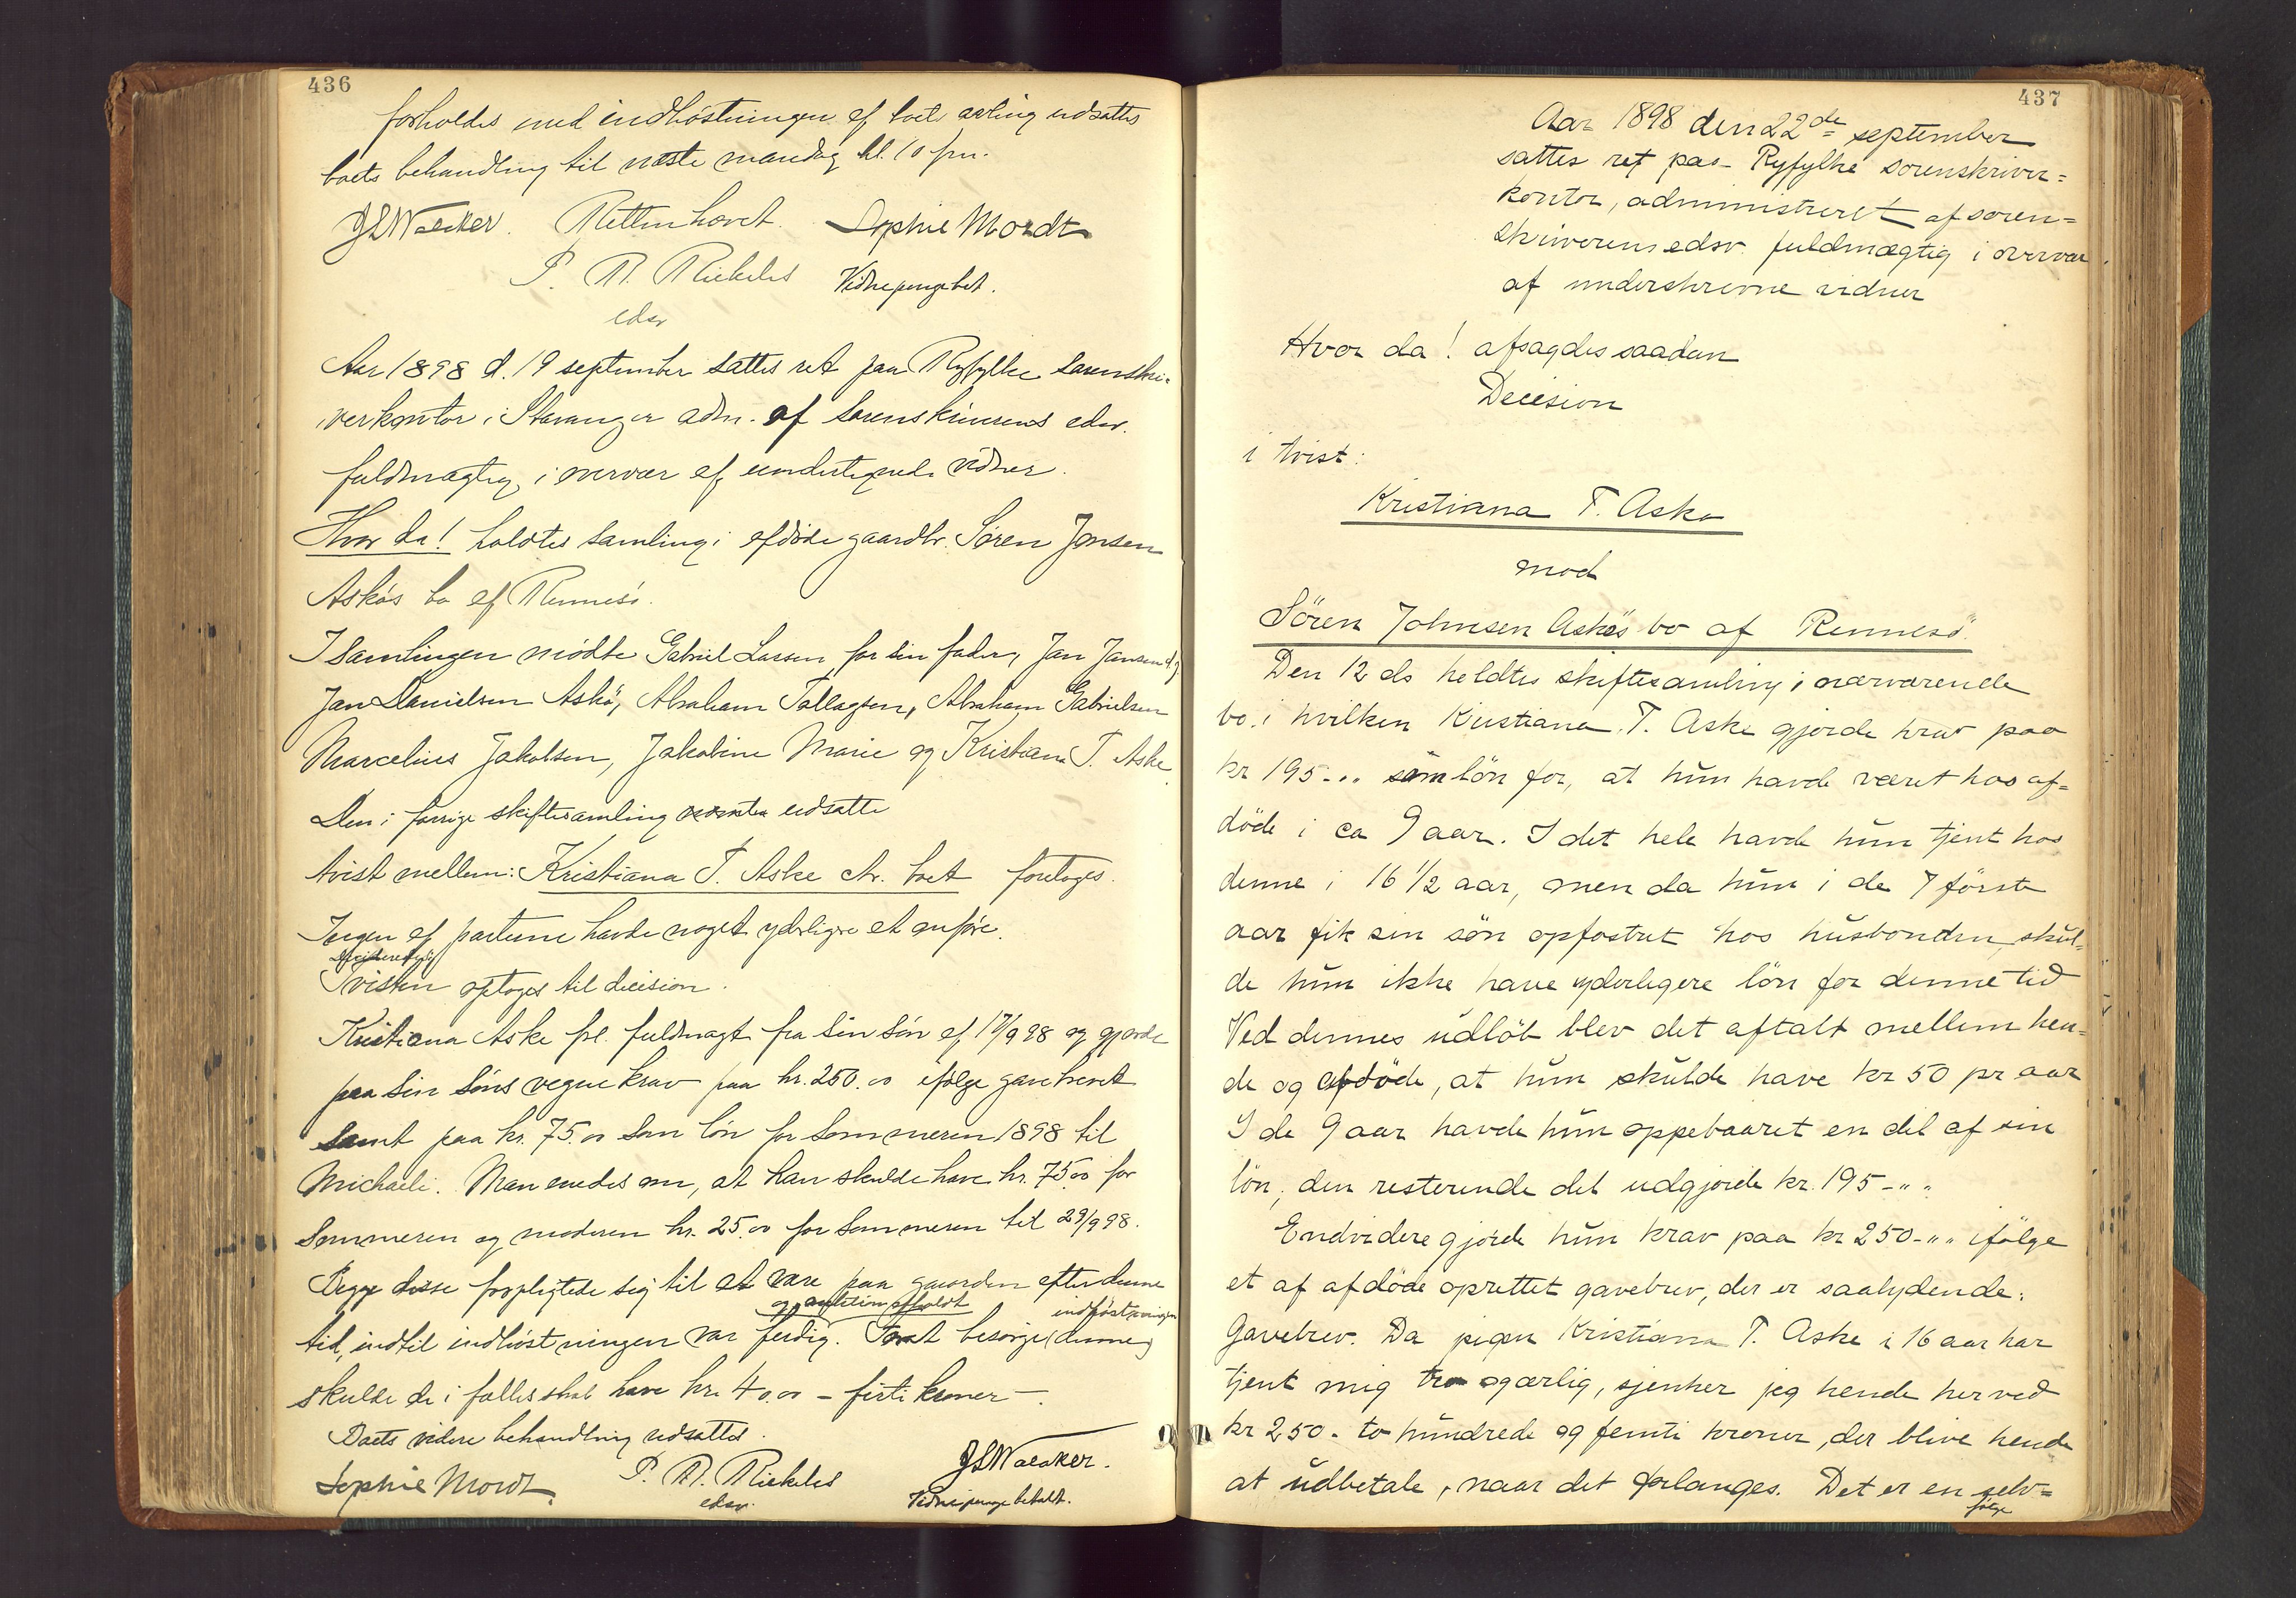 436
forholdes med indhøstningen af boets avling udsattes
boets behandling til næste mandag kl. 10 fm.
JSWaaker. Retten hævet. Sophie Mordt
P. A. Rickeles Vidnepenge bet.
edsv
Aar 1898 d. 19 september sattes ret paa Ryfylke sorenskri-
verkontor i Stavanger adm. af sorenskriverens edsv.
fuldmægtig i overvær af undertegnede vidner.
Hvor da! holdtes samling i afdøde gaardbr. Søren Jonsen
Askøs bo af Rennesø.
I samlingen mødte Gabriel Larsen for sin fader, Jan Jansen d.y.
Jan Danielsen Askø, Abraham Tollagsen, Abraham Gabrielsen
Marcelius Jakobsen, Jakobine Marie og Kristiana T. Aske
Den i forrige skiftesamling udsatte
tvist mellem: Kristiana T. Aske ctr. boet foretoges.
Ingen af parterne havde noget yderligere at anføre.
Tvisten optoges til decision.
Kristiana Aske frl. fuldmagt fra sin søn af 17/9 98 og gjorde
paa sin søns vegne krav paa kr. 250.00 ifølge gavebrevet
samt paa kr. 75.00 som løn for sommeren 1898 til
Michaeli. Man enedes om, at han skulde have kr. 75.00 for
sommeren og moderen kr. 25.00 for sommeren til 29/9 98.
Begge disse forpligtede sig til at være paa gaarden efter denne
og auktion afholdt indhøstningen
tid, indtil indhøstningen var ferdig. For at besørge (denne)
skulde de i fællesskab have kr. 40.00 – firti kroner –.
Boets videre behandling udsattes.
Sophie Mordt. P. A. Rickeles JSWaaker.
edsv. Vidnepenge betalt.
437
Aar 1898 den 22de september
sattes ret paa Ryfylke sorenskriver=
kontor, administreret af soren=
skriverens edsv. fuldmægtig i overvær
af underskrevne vidner
Hvor da! afsagdes saadan
Decision
i tvist:
Kristiana T. Aske
mod
Sören Johnsen Askös bo af Rennesö.
Den 12 ds holdtes skiftesamling i nærværende
bo. i hvilken Kristiana T. Aske gjorde krav paa
kr 195-,, som lön for, at hun havde været hos af=
döde i ca 9 aar. I det hele havde hun tjent hos
denne i 16 1/2 aar, men da hun i de 7 förste
aar fik sin sön opfostret hos husbonden, skul=
de hun ikke have yderligere lön for denne tid
Ved dennes udlöb blev det aftalt mellem hen=
de og afdöde, at hun skulde have kr 50 pr aar
I de 9 aar havde hun oppebaaret en del af sin
lön, den resterende del udgjorde kr. 195-,,
Endvidere gjorde hun krav paa kr 250-,, ifölge
et af afdöde oprettet gavebrev, der er saalydende:
Gavebrev. Da pigen Kristiana T. Aske i 16 aar har
tjent mig tro og ærlig, sjenker jeg hende herved
kr 250- to hundrede og femti kroner, der blive hende
at udbetale, naar det forlanges. Det er en selv=
følge